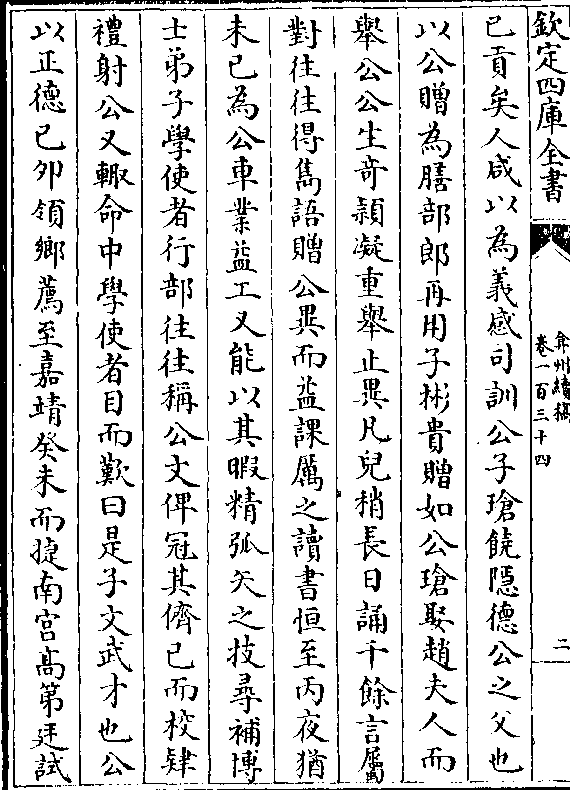 欽定四庫全書
弇州續稿
卷一百三十四
二
已貢矣人咸以為義感司訓公子瑲饒隱德公之父也
以公贈為膳部郎再用子彬貴贈如公瑲娶趙夫人而
舉公公生竒穎凝重舉止異凡兒稍長日誦千餘言屬
對往往得雋語贈公異而益課厲之讀書恒至丙夜猶
未已為公車業益工又能以其暇精弧矢之技尋補博
士弟子學使者行部往往稱公文俾冠其儕已而校肄
禮射公又輙命中學使者目而歎曰是子文武才也公
以正德己夘領鄉薦至嘉靖癸未而捷南宫髙第廷試